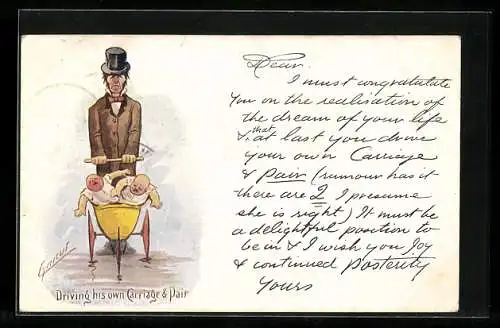 Dear
I must congratulate
You on the realisation of
the dream of your life
& that at last you drive
your own Carriage
& Pair (rumour has it
there are 2 I presume
she is right) It must be
a delightful position to
be in & I wish you Joy
& continued Posterity
Yours
Driving his own Carriage & Pair